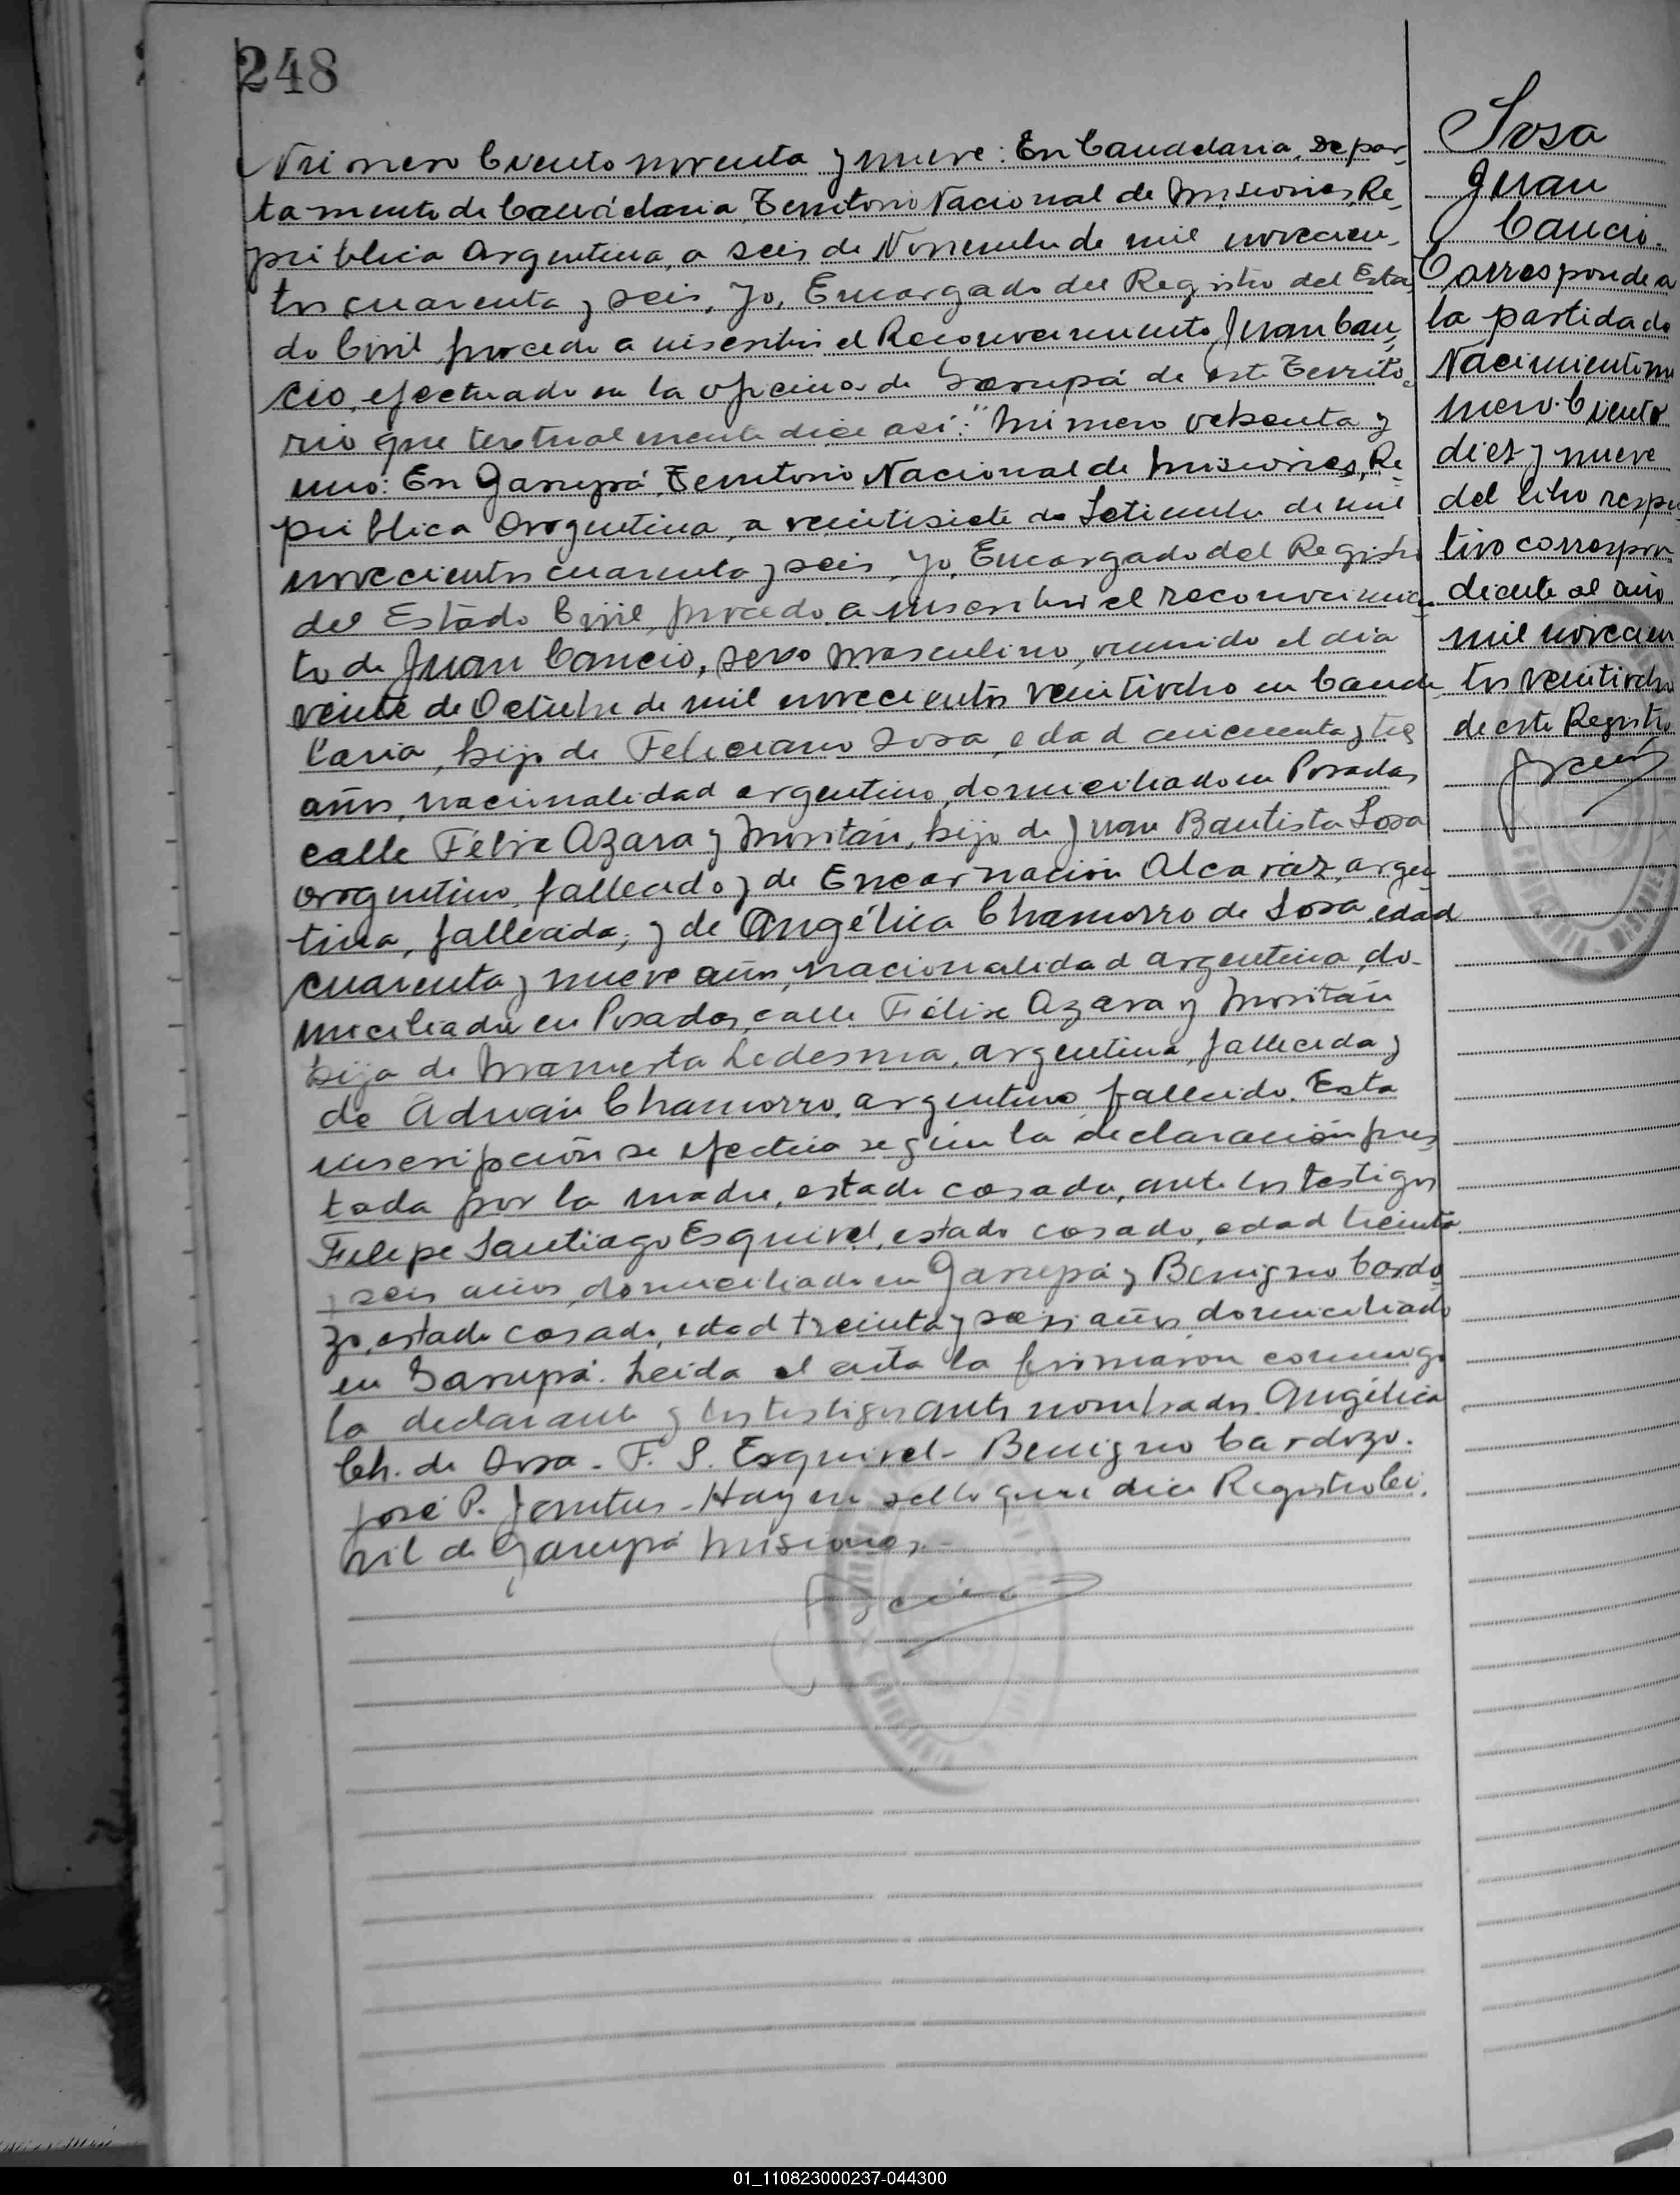 248
Número Ciento noventa y nueve: En Candelaria, Depar-
tamento de Candelaria, Territorio Nacional de Misiones, Re-
pública Argentina, a seis de Noviembre de mil novecien-
tos cuarenta y seis, Yo, Encargado del Registro del Esta-
do Civil, procedo a inscribir el Reconocimiento Juan Can-
cio, efectuado en la oficina de Garupá de este Territo-
rio que textualmente dice así: "Número ochenta y
uno: En Garupá, Territorio Nacional de Misiones, Re-
pública Argentina, a veintisiete de Setiembre de mil
novecientos cuarenta y seis, Yo, Encargado del Registro
del Estado Civil, procedo a inscribir el reconocimien-
to de Juan Cancio, sexo masculino, nacido el día
veinte de Octubre de mil novecientos veintiocho en Cande-
laria, hijo de Feliciano Sosa, edad cincuenta y tres
años, nacionalidad argentino, domiciliado en Posadas
calle Félix Azara y hijo de Juan Bautista Sosa
argentino, fallecido y de Encarnación Alcaráz, argen-
tina, fallecida; y de Angélica Chamorro de Sosa, edad
cuarenta y nueve años, nacionalidad argentina, do-
miciliada en Posadas, calle Félix Azara y
hija de Ledesma, argentina, fallecida y
de Adrián Chamorro, argentino, fallecido. Esta
inscripción se efectúa según la declaración pres-
tada por la madre, estado casada, ante los testigos
Felipe Santiago Esquivel, estado casado, edad treinta
y seis años, domiciliado en Garupá y Benigno Cardo-
zo, estado casado, edad treinta y seis años domiciliado
en Garupá. Leída el acta la firmaron conmigo
la declarante y los testigos antes nombrados. Angélica
Ch. de Sosa - F. S. Esquivel - Benigno Cardozo.
José P. - Hay un sello que dice Registro Ci-
vil de Garupá Misiones.-
Sosa
Juan
Cancio.
Corresponde a
la partida de
Nacimiento nú
mero Ciento
diez y nueve
del libro respec
tivo correspon
diente al año
mil novecien
tos veintiocho
de este Registro
01_110823000237-044300